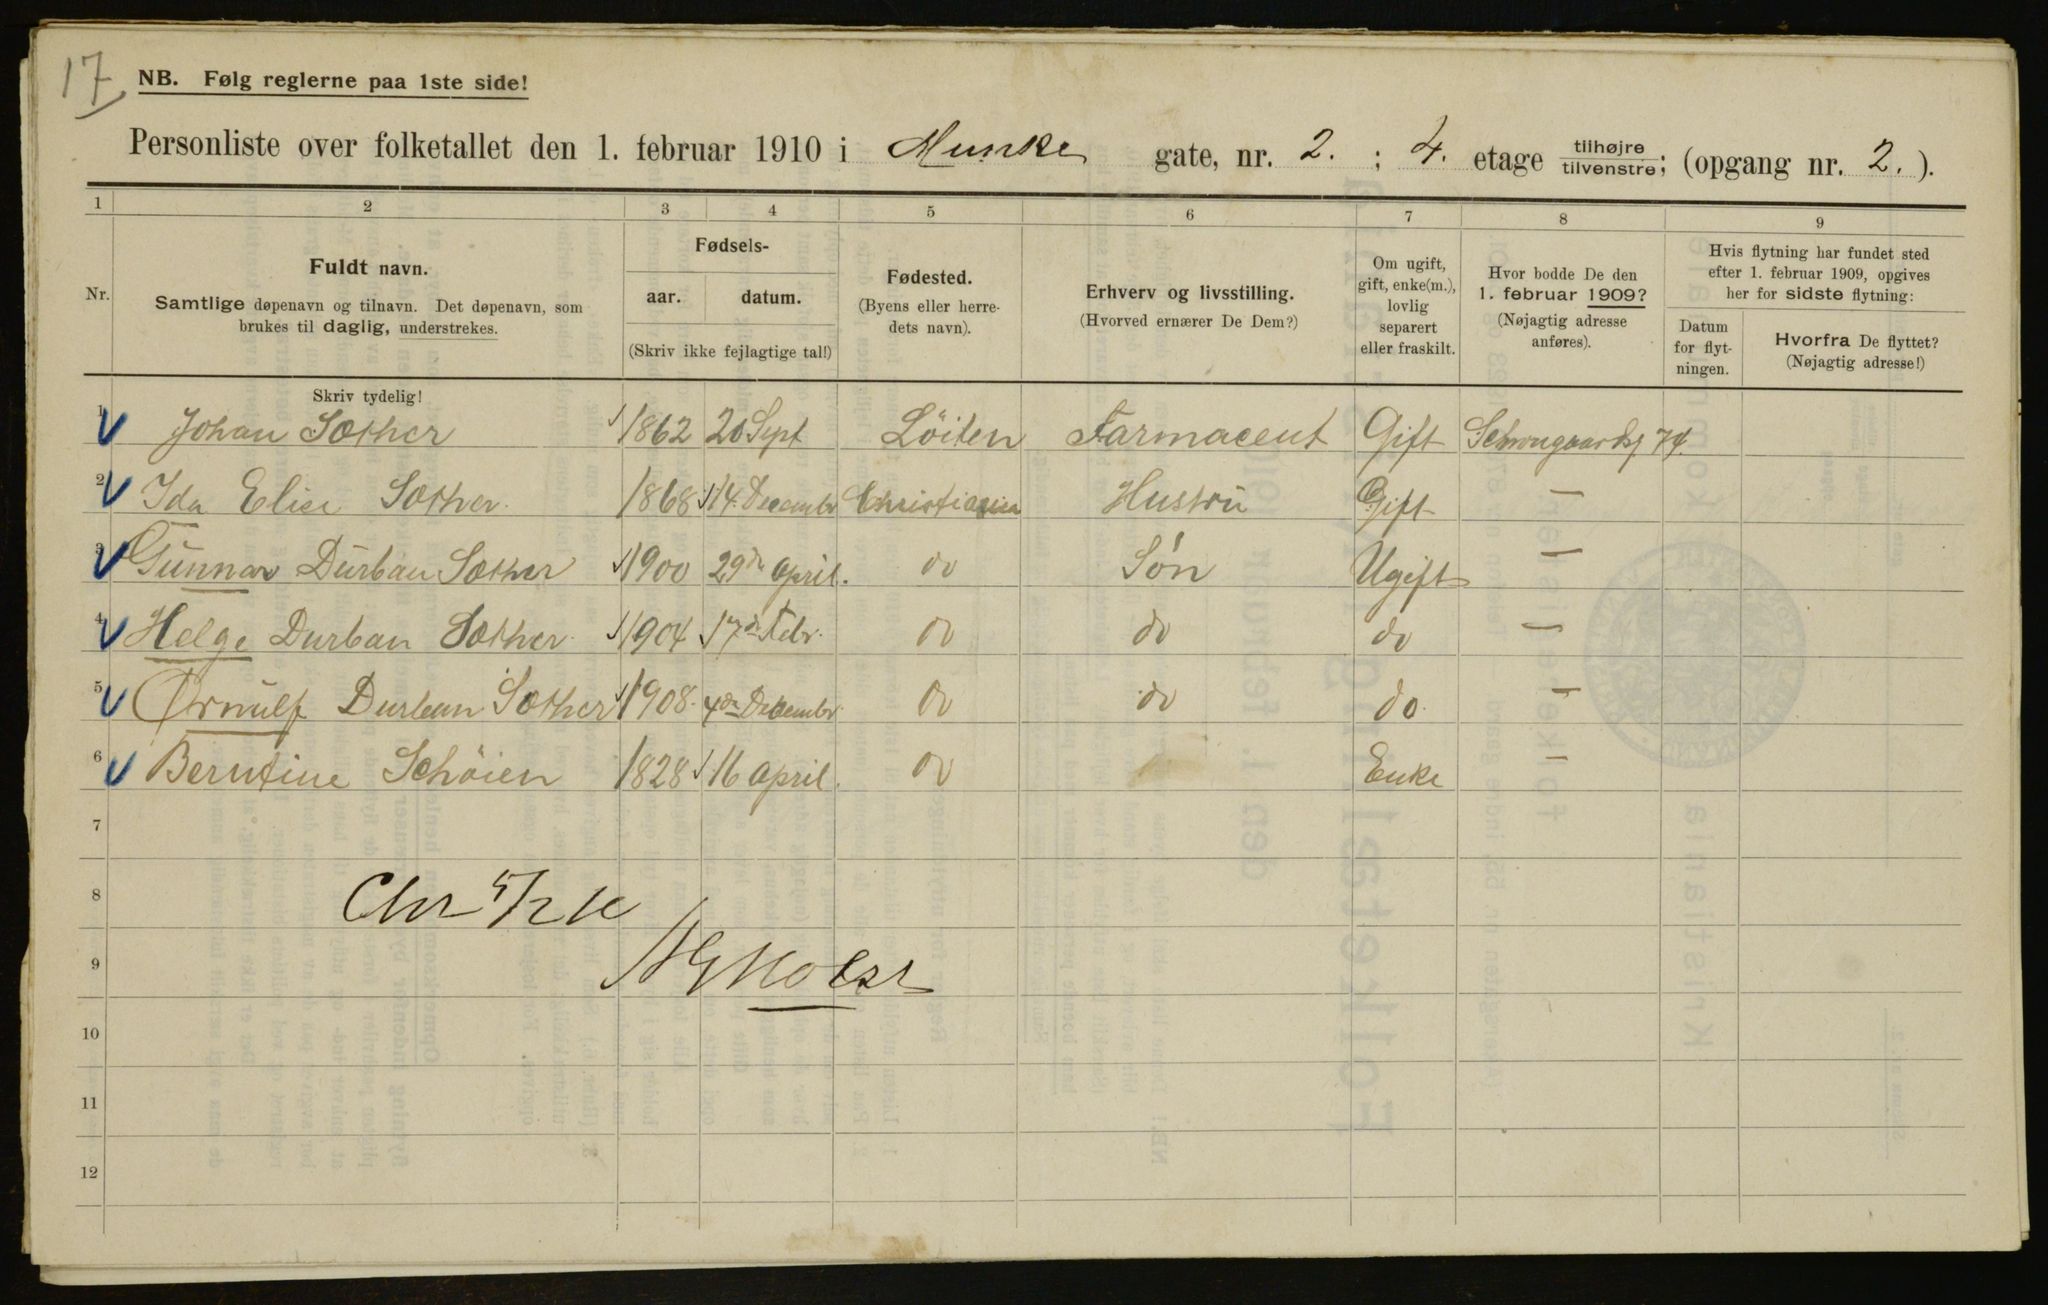 17
NB. Følg reglerne paa 1ste side!
Personliste over folketallet den 1. februar 1910 i Munke gate, nr. 2. ; 4. etage tilhøjre tilvenstre; (opgang nr. 2. ).
1 2 3 4 5 6 7 8 9
Nr.
Fuldt navn.
Samtlige døpenavn og tilnavn. Det døpenavn, som
brukes til daglig, understrekes.
Fødsels-
aar. datum.
(Skriv ikke fejlagtige tal!)
Fødested.
(Byens eller herre-
dets navn).
Erhverv og livsstilling.
(Hvorved ernærer De Dem?)
Om ugift,
gift, enke(m.),
lovlig
separert
eller fraskilt.
Hvor bodde De den
1. februar 1909?
(Nøjagtig adresse
anføres).
Hvis flytning har fundet sted
efter 1. februar 1909, opgives
her for sidste flytning:
Datum
for flyt-
ningen.
Hvorfra De flyttet?
(Nøjagtig adresse!)
Skriv tydelig!
1 Johan Sæther 1862 20 Sept Löiten Farmaceut Gift Schweigaardsg 74.
2 Ida Elise Sæther. 1868 14. December Christiania Hustru Gift —
3 Gunnar Durban Sæther 1900 29de April. do Søn Ugift —
4 Helge Durban Sæther 1904 17de Febr. do do do —
5 Ørnulf Durban Sæther 1908. 4de December do do do. —
6 Berntine Schöien 1828 16 April. do Enke —
7
8
Chr 5/2 10
9
10
11
12